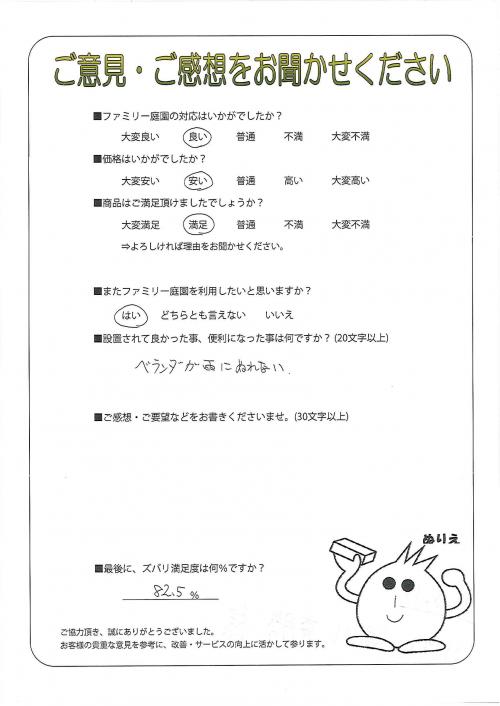 ご意見・ご感想をお聞かせください
■ファミリー庭園の対応はいかがでしたか？
大変良い 良い 普通 不満 大変不満
■価格はいかがでしたか？
大変安い 安い 普通 高い 大変高い
■商品はご満足頂けましたでしょうか？
大変満足 満足 普通 不満 大変不満
⇒よろしければ理由をお聞かせください。
■またファミリー庭園を利用したいと思いますか？
はい どちらとも言えない いいえ
■設置されて良かった事、便利になった事は何ですか？(20文字以上)
ベランダが雨にぬれない.
■ご感想・ご要望などをお書きくださいませ。(30文字以上)
ぬりえ
■最後に、ズバリ満足度は何%ですか？
82.5 %
ご協力頂き、誠にありがとうございました。
お客様の貴重な意見を参考に、改善・サービスの向上に活かして参ります。